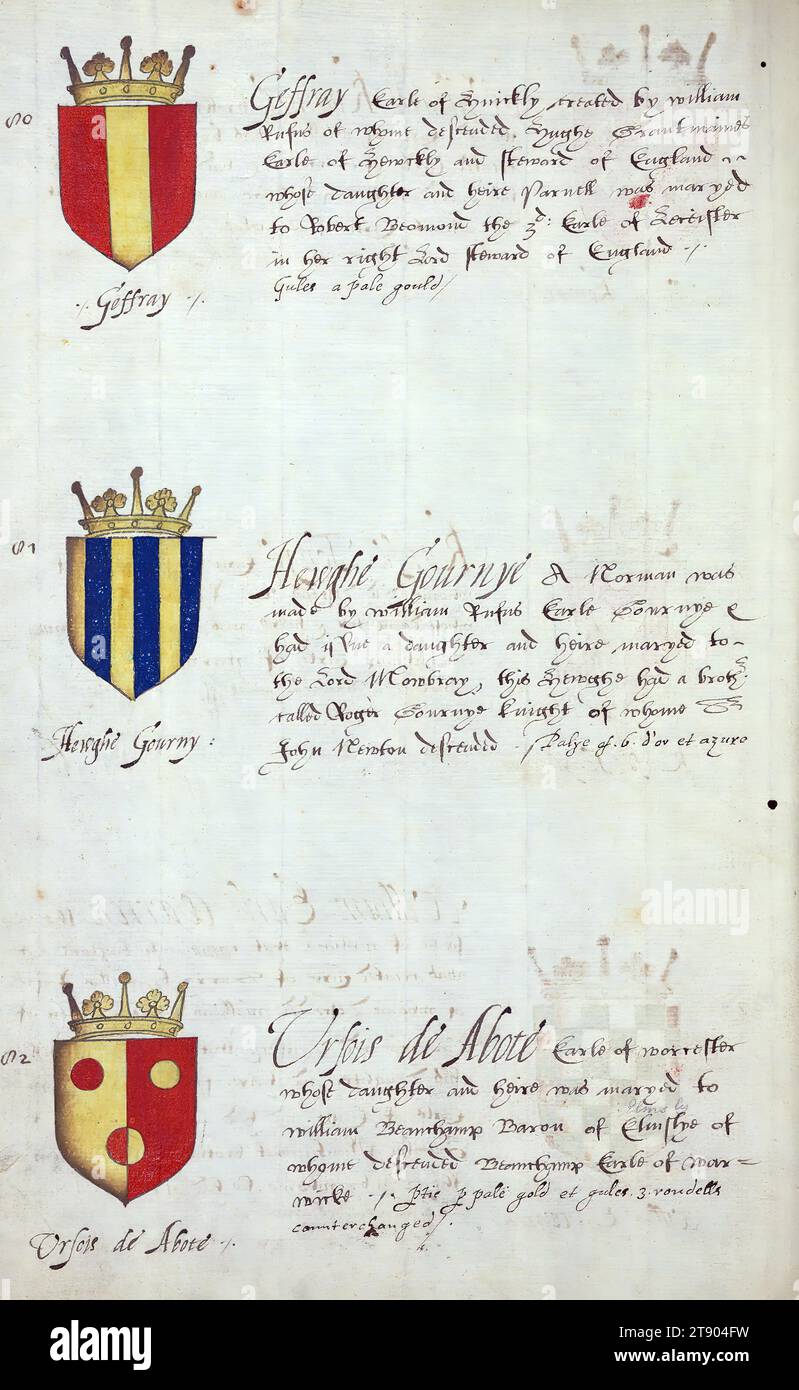 80
Geffray Earle of Hinickly created by William
Rufus of whome descended Hughe Grantmaines
Earle of Hewickly and steward of England ~
whose daughter and heire Parnell was maryed
to Robert Beomond the 3d: Earle of Leceister
in her right Lord steward of England ·/·
Gules a pale gould/
·/· Geffray ·/·
81
Hewghe Gournye A Norman was
made by William Rufus Earle Gournye &
had issue a daughter and heire maryed to ~
the Lord Mowbray, this Hewghe had a broth:
called Roger Gournye knight of whome Sr
John Newton descended ·/ Palye of .6. d'or et azure
Hewghe Gourny :
82
Ursois de Abote Earle of worcester
whose daughter and heire was maryed to
Elms ley
William Beauchamp Baron of Elmslye of
whome descended Beauchamp Earle of War=
wicke ·/· ptie p pale gold et gules .3. rondells
counterchanged/.
Ursois de Abote ·/·
alamy
alamy
alamy
Image ID: 2T904FW
www.alamy.com